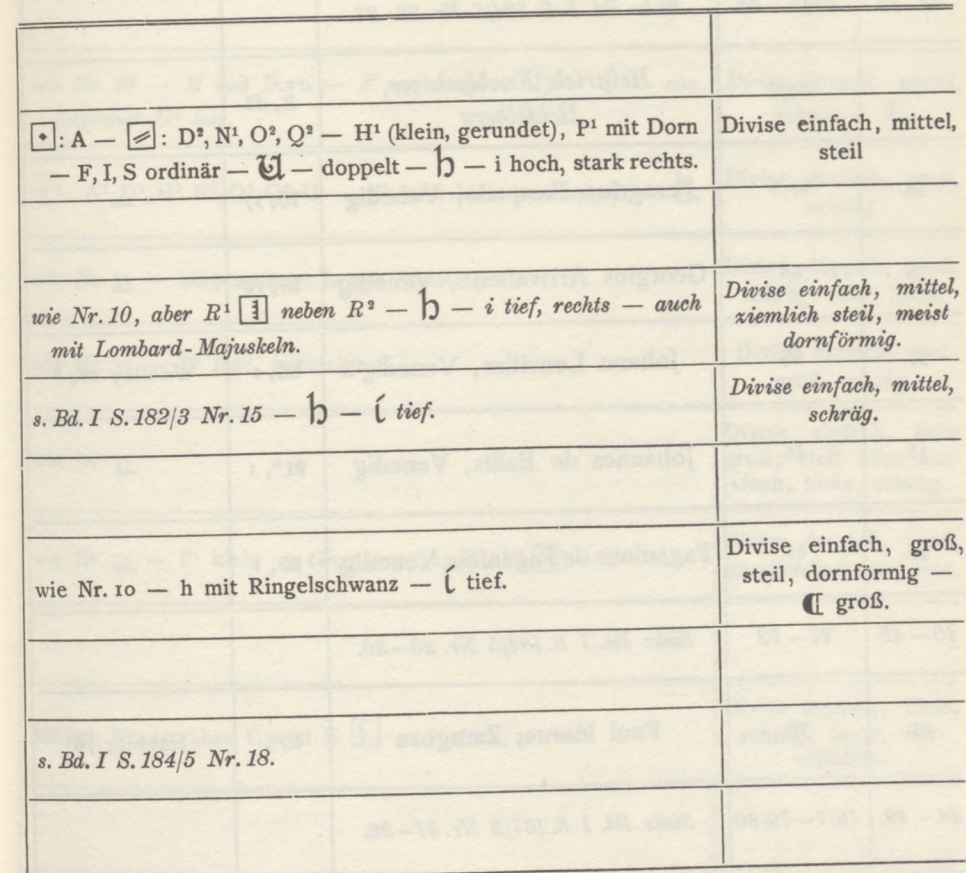 : A — : D², N¹, O², Q² — H¹ (klein, gerundet), P¹ mit Dorn
— F, I, S ordinär — 𝔘 — doppelt — 𝔥 — i hoch, stark rechts.
Divise einfach, mittel,
steil
wie Nr. 10, aber R¹ neben R² — 𝔥 — i tief, rechts — auch
mit Lombard-Majuskeln.
Divise einfach, mittel,
ziemlich steil, meist
dornförmig.
s. Bd. I S. 182/3 Nr. 15 — 𝔥 — í tief.
Divise einfach, mittel,
schräg.
wie Nr. 10 — h mit Ringelschwanz — tief.
Divise einfach, groß,
steil, dornförmig —
groß.
s. Bd. I S. 184/5 Nr. 18.